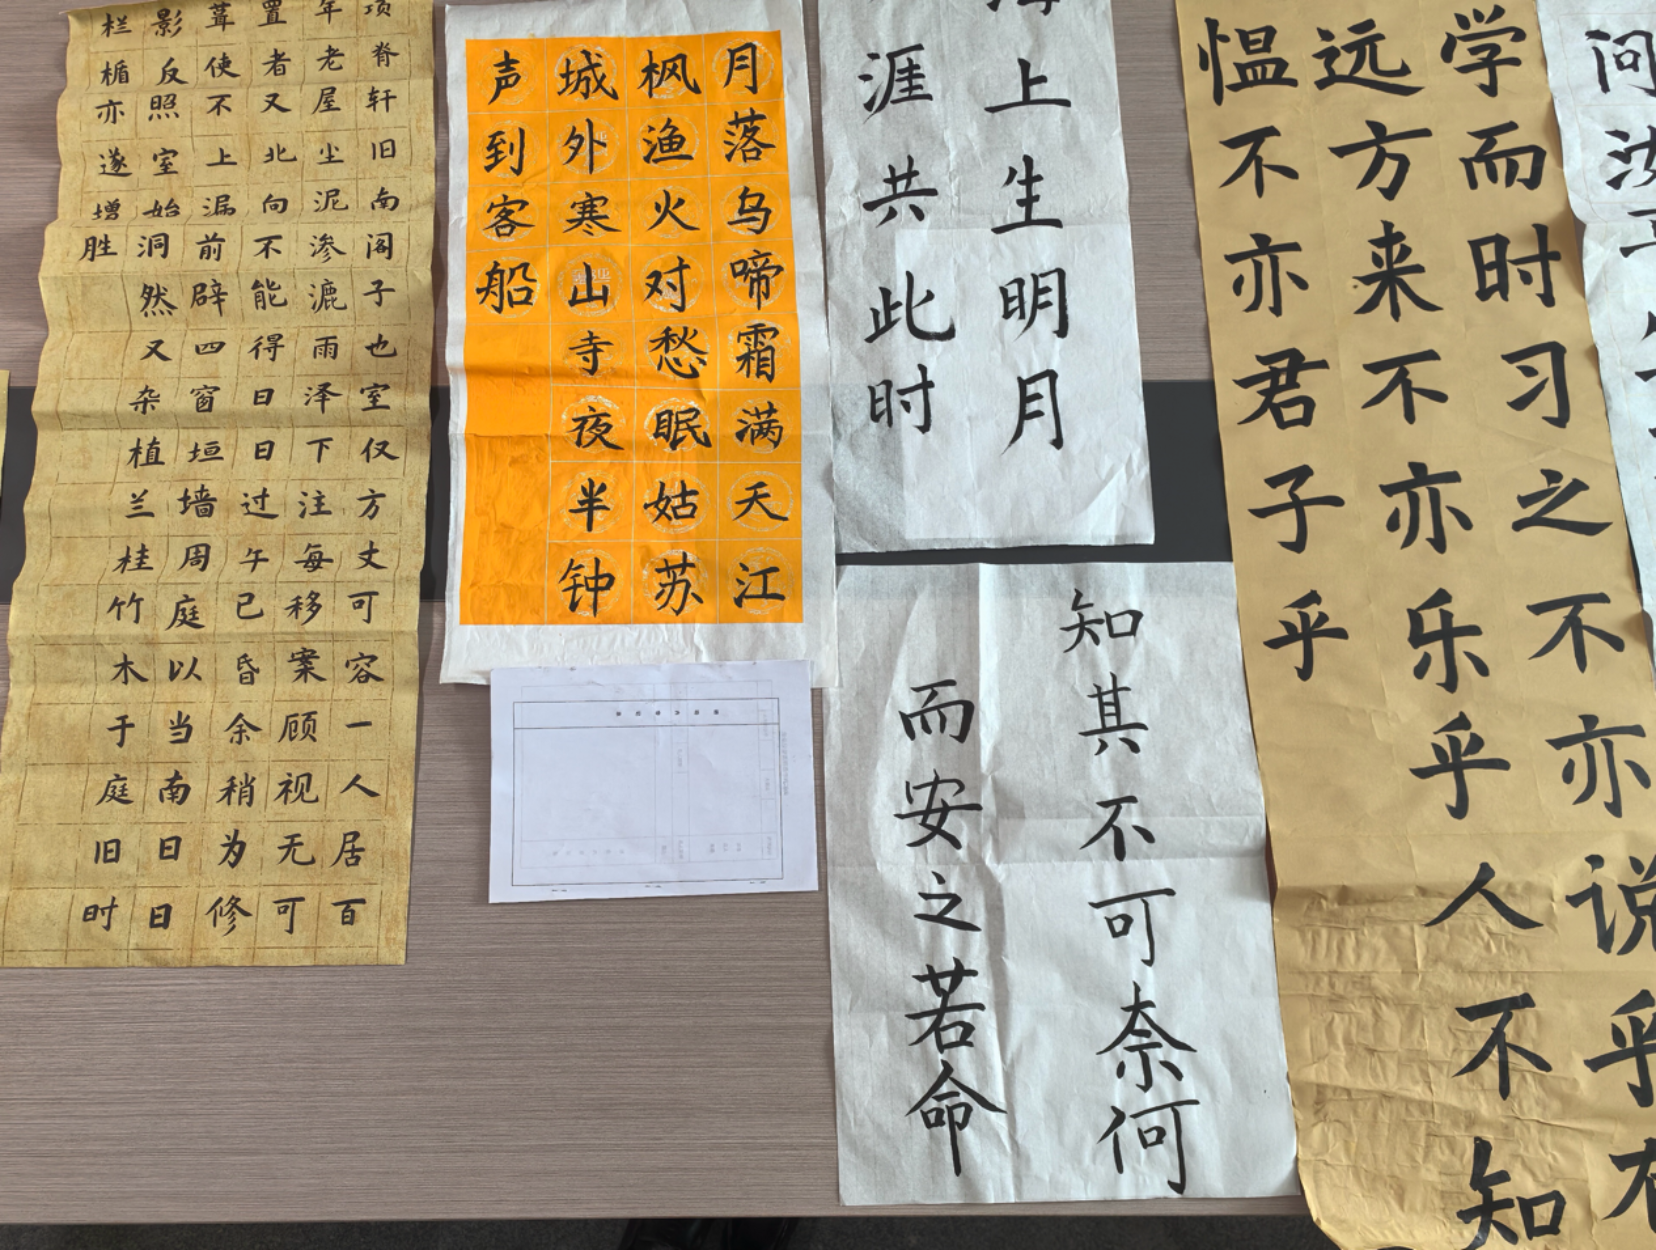 项脊轩旧南阁子也室仅方丈可容一人居百
年老屋尘泥渗漉雨泽下注每移案顾视无可
置者又北向不能得日日过午已昏余稍为修
葺使不上漏前辟四窗垣墙周庭以当南日日
影反照室始洞然又杂植兰桂竹木于庭旧时
栏楯亦遂增胜
月落乌啼霜满天江
枫渔火对愁眠姑苏
城外寒山寺夜半钟
声到客船
上生明月
涯共此时
知其不可奈何
而安之若命
学而时习之不亦说乎
远方来不亦乐乎人不知
愠不亦君子乎
问汝